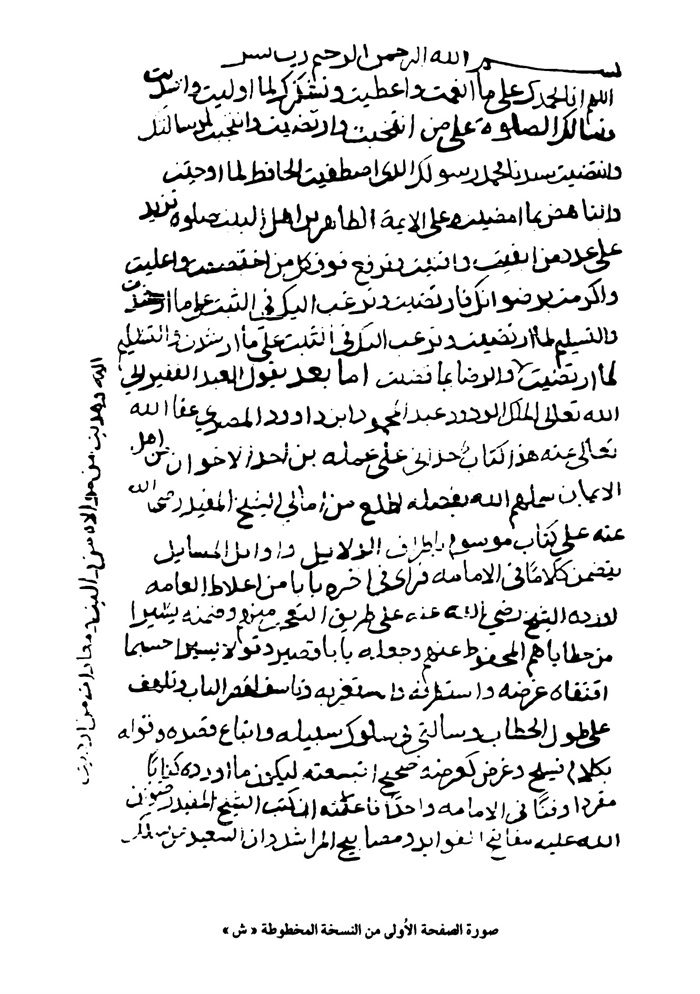 بسم الله الرحمن الرحيم رب يسر
اللهم انا نحمدك على ما انعمت واعطيت ونشكرك لما اوليت واسديت
ونسالك الصلوة على من انتجبت وارتضيت وانتجبت لرسالتك
سيدنا محمد رسولك الذى اصطفيت الحافظ لما اوحيت
والناهض بما امضيت وعلى الايمة الطاهرين اهل البيت صلوة تزيد
على عدد من ابقيت وافنيت وترفع فوق كل من اختصصت واعليت
واكرمت برضوانك فارتضيت ونرغب اليك فى التثبت على ما
والتسليم لما ارتضيت ونرغب اليك فى التثبت على ما ارشدت والتسليم
لما ارتضيت والرضا بما قضيت اما بعد يقول العبد الفقير الى
الله تعالى الملك الودود عبد المحمود ابن داوود المصري عفا الله
تعالى عنه هذا كتاب حداني على عمله بن احد الاخوان من اهل
الايمان سلمهم الله بفضله اطلع من امالي الشيخ المفيد رضي الله
عنه على كتاب موسوم باطراف الدلايل واوايل المسايل
يتضمن كلاما فى الامامه فراى فى اخره بابا من اغلاط العامه
اورده الشيخ رضي الله عنه على طريق التعجب منهم وضمنه يسيرا
من خطاياهم المحفوظ عنهم وجعله بابا قصيرا وقولا يسيرا حسبما
اقتضاه غرضه واستطرفه واستغربه وتاسف لقصر الباب وتلهف
على طول الخطاب وسالني فى سلوك سبيله واتباع قصده وقوله
بكلام فسيح وغرض كغرضه صحيح اتبعته ليكون ما اورده كتابا
مفردا وفنا فى الامامه واحدا عالما ان كتب الشيخ المفيد رضوان
الله عليه مفاتيح الفوايد ومصابيح المراشد وان السعيد من سلك
صورة الصفحة الأولى من النسخة المخطوطة « ش »